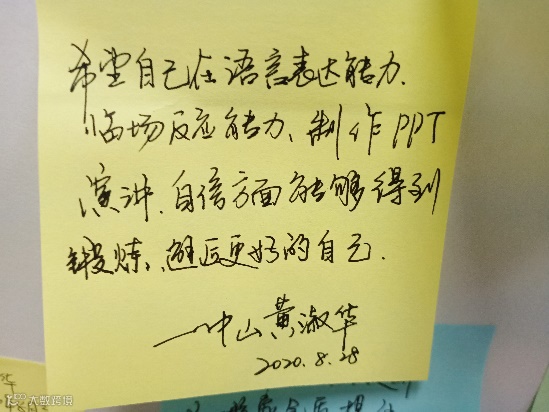 希望自己在语言表达能力、
临场反应能力、制作PPT
演讲、自信方面能够得到
锻炼、遇后更好的自己.
——中山黄淑华
2020.8.28
大数跨境